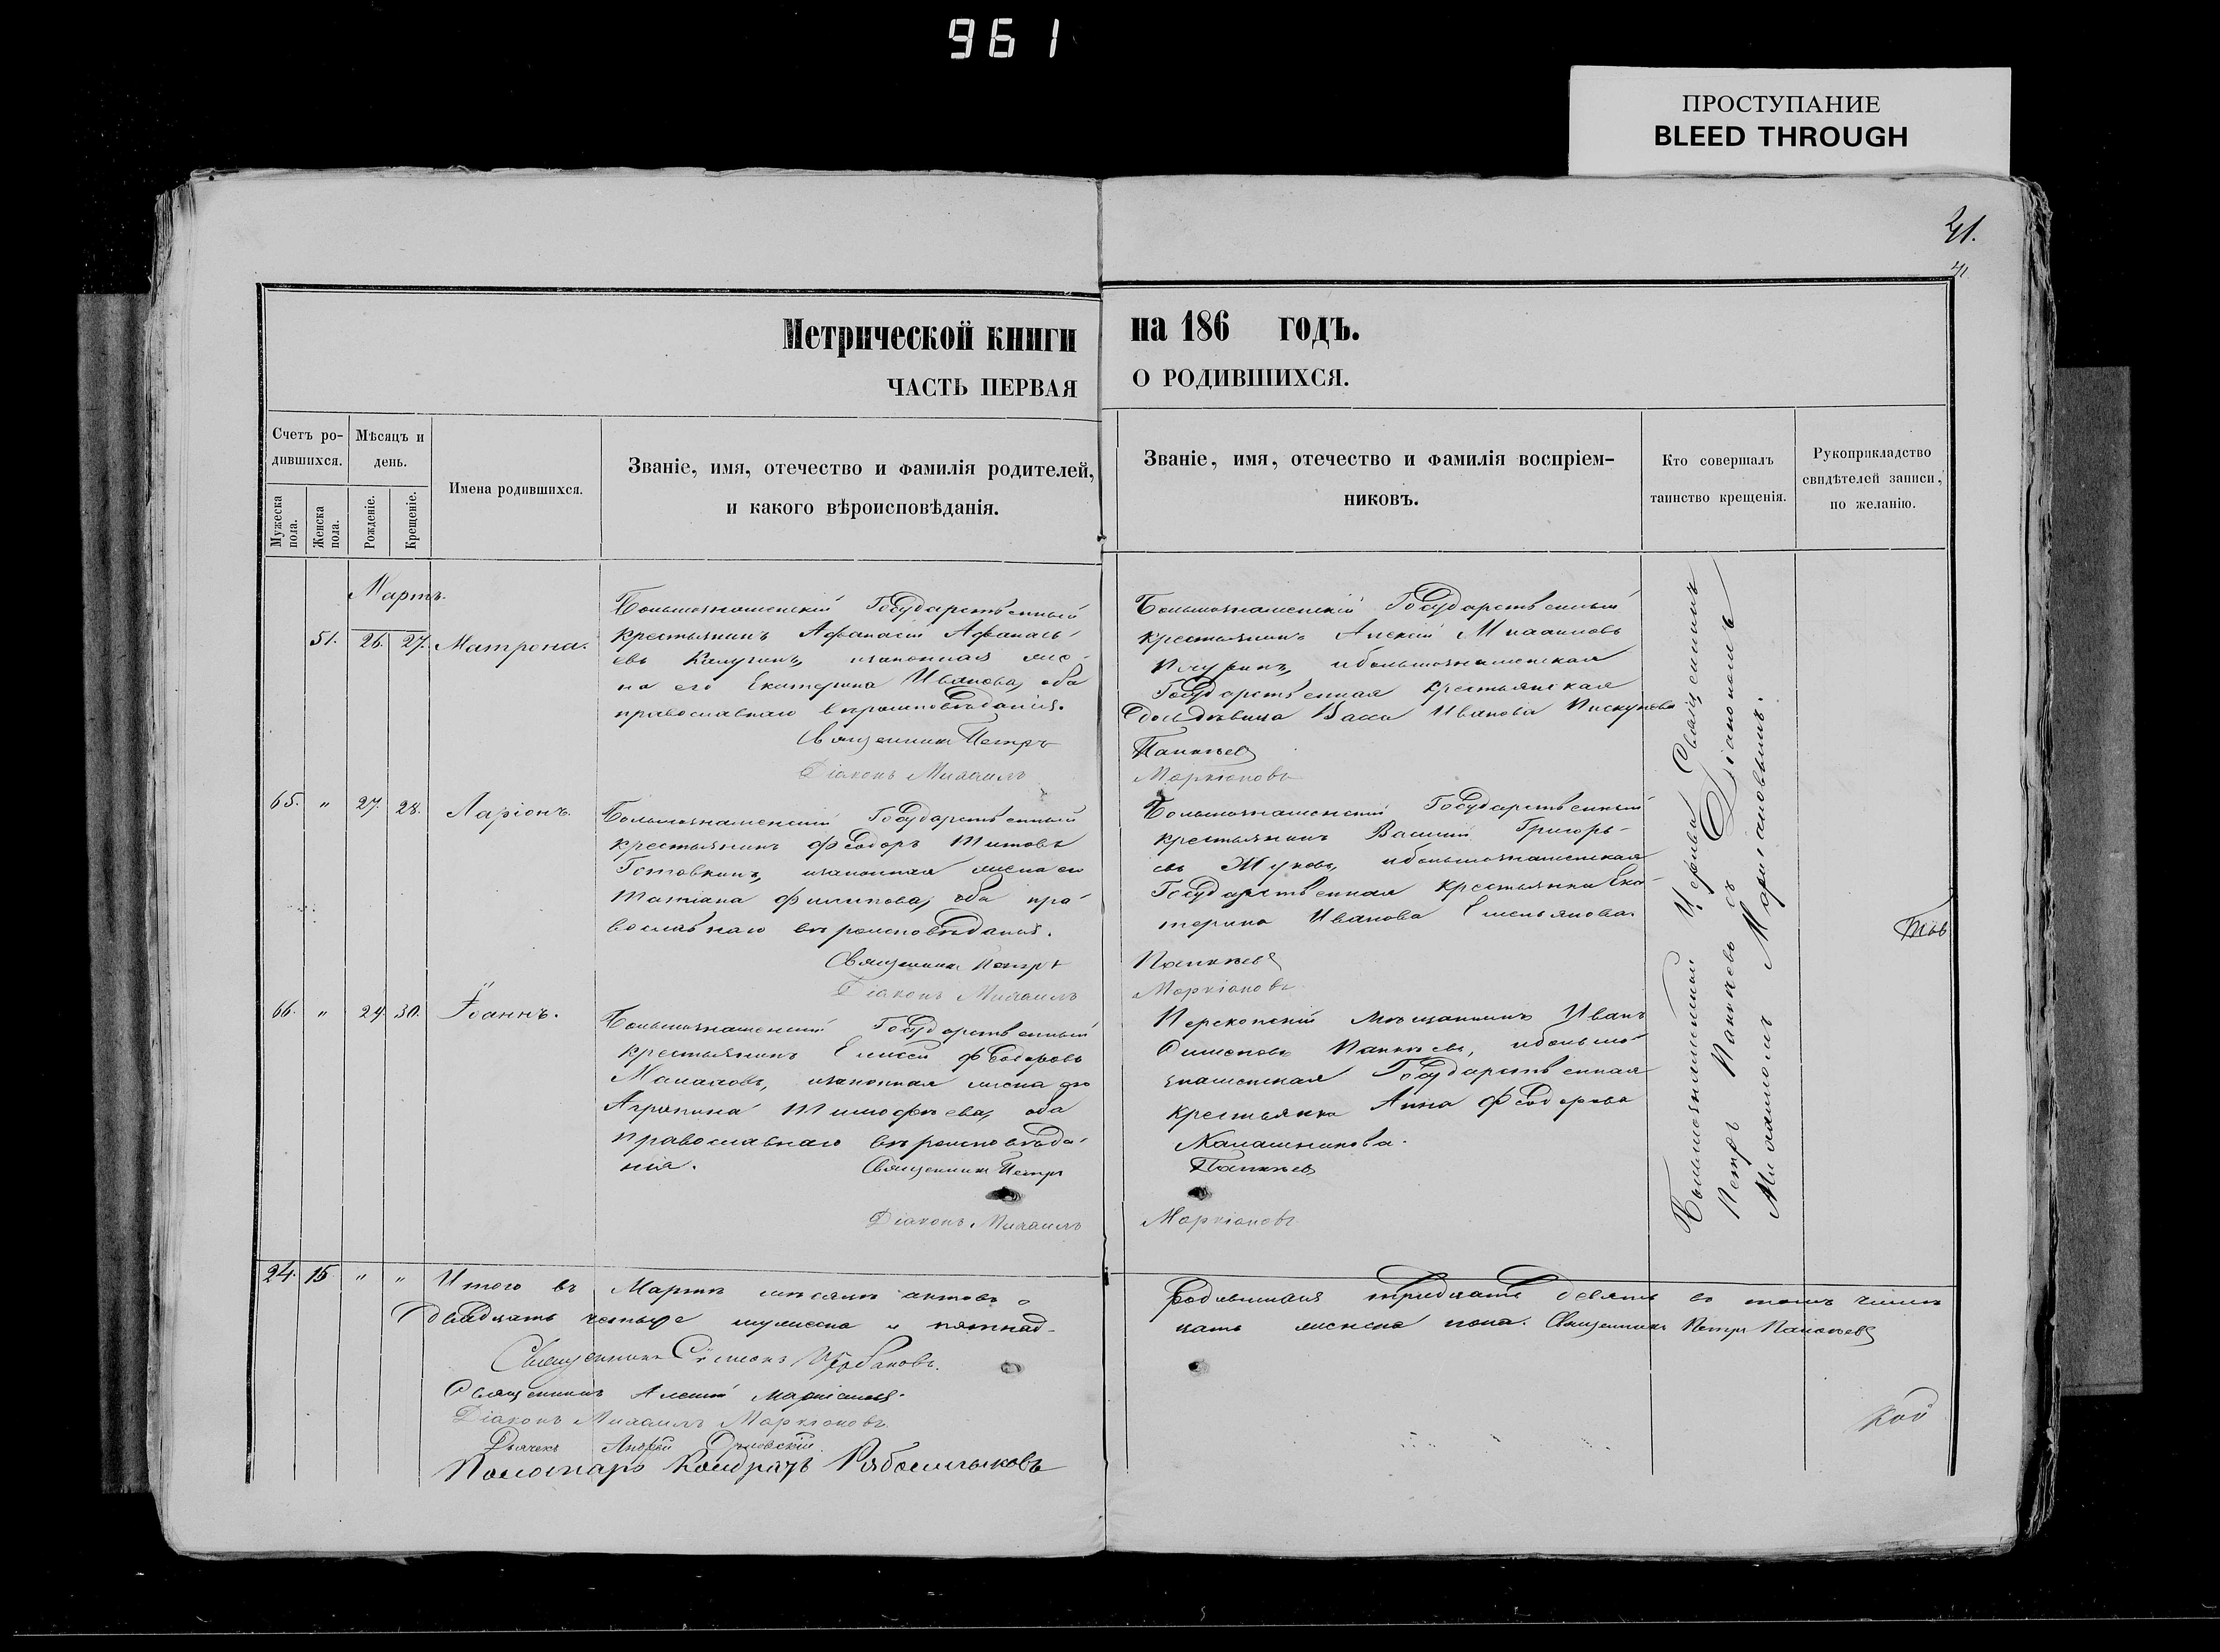 961
ПРОСТУПАНИЕ
BLEED THROUGH
41.
41
Метрической книги на 186 годъ.
ЧАСТЬ ПЕРВАЯ О РОДИВШИХСЯ.
Счетъ ро-
дившихся.
Мужеска
пола.
Женска
пола.
Мѣсяцъ и
день.
Рожденіе.
Крещеніе.
Имена родившихся.
Званіе, имя, отечество и фамилія родителей,
и какого вѣроисповѣданія.
Званіе, имя, отечество и фамилія воспріем-
никовъ.
Кто совершалъ
таинство крещенія.
Рукоприкладство
свидѣтелей записи,
по желанію.
Мартъ.
51. 26. 27. Матрона.
Большознаменскій Государственный
крестьянинъ Афанасій Афанась-
евъ изаконная же-
на его Екатерина Иванова, оба
православнаго вѣроисповѣданія.
Священникъ Петръ
Діаконъ Михаилъ
Большознаменскій Государственный
крестьянинъ Алексій Михаиловъ
ибольшознаменская
Государственная крестьянская
дѣвица Васса Иванова Пискунова
Панкѣевъ
Маркіановъ
65. " 27. 28. Ларіонъ.
Большознаменскій Государственный
крестьянинъ Феодоръ Титовъ
Готовкинъ, изаконная жена его
Татіана Филипова, оба пра-
вославнаго вѣроисповѣданія.
Священникъ Петръ
Діаконъ Михаилъ
Большознаменскій Государственный
крестьянинъ Василій Григорь-
евъ Жуковъ, ибольшознаменская
Государственная крестьянка Ека-
терина Иванова Емельянова.
Панкѣевъ
Маркіановъ
66. " 29. 30. Іоаннъ.
Большознаменскій Государственный
крестьянинъ Елисей Феодоровъ
Малаховъ, изаконная жена его
Агрипина Тимофѣева, оба
православнаго вѣроисповѣда-
нія. Священникъ Петръ
Діаконъ Михаилъ
Перекопскій мѣщанинъ Иванъ
Симеоновъ Панкѣевъ, ибольшо-
знаменская Государственная
крестьянка Анна Феодорова
Калашникова.
Панкѣевъ
Маркіановъ
Большознаменской Церкви Священникъ
Петръ Панкѣевъ съ Діакономъ
Михаиломъ Маркіановымъ.
24. 15 " " Итого въ Мартѣ мѣсяцѣ актовъ о
родившихся тридцать девять въ томъ числѣ
двадцать четыре мужеска и пятнад-
цать женска пола. Священникъ Петръ Панкѣевъ
Священникъ Сѵмеонъ
Священникъ Алексій Маркіановъ.
Діаконъ Михаилъ Маркіановъ.
Дьячекъ Андрей Орловскій.
Пономарь Кондратъ Рябошлыковъ
кой